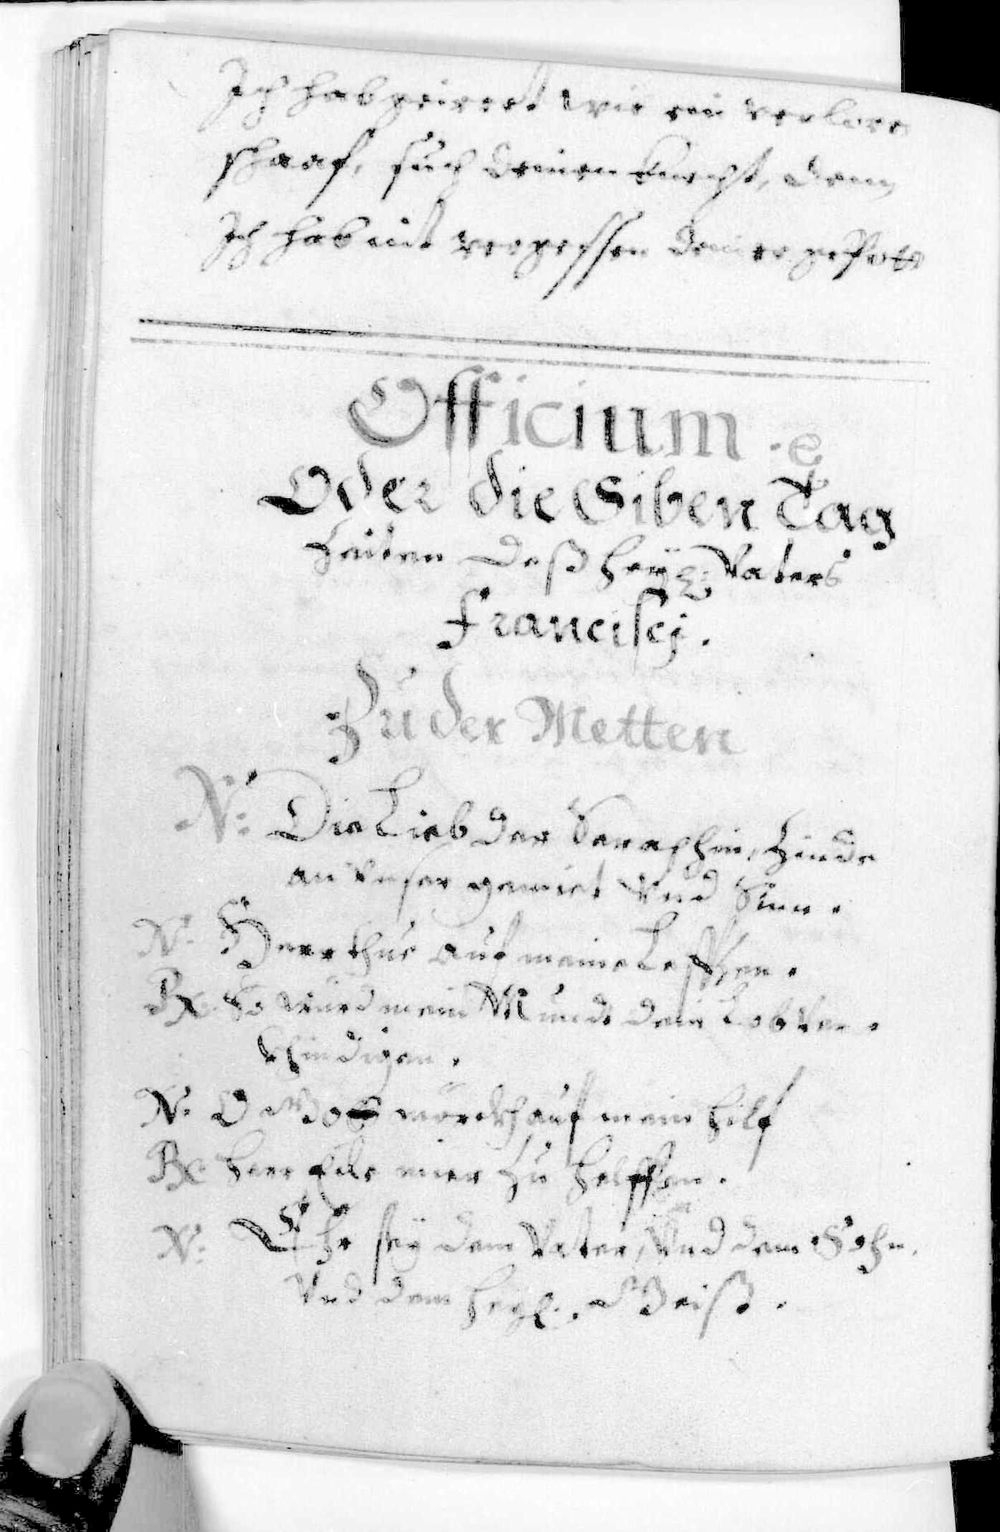 Ich hab geirret wie ein verloren
schaaf, such deinen knecht, dann
Ich hab nit vergessen deiner gebott
Officium .e
Oder die Siben Tag
Zeiten deß heÿl: Vaters
Francisci.
Zu der Metten
V: Die Lieb der Seraphin, Zinde
an Unser gemiet Und Sinn.
V. Herr thue auf meine Leffzen.
R. So würd mein Mundt dein Lob ver-
khindigen.
V. O Gott mörckh auf mein hilf
R. herr eile mier zu helffen.
V: Ehr seÿ dem Vater, Und dem Sohn,
Und dem heÿl: Geist.